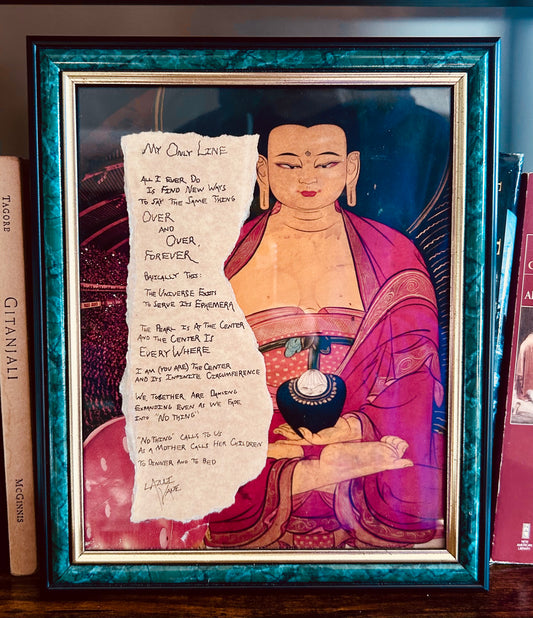 My Only Line
All I Ever Do
Is Find New Ways
To Say The Same Thing
Over
and
Over,
Forever
Basically This:
The Universe Exists
To Serve Its Ephemera
The Pearl Is At The Center
And The Center Is
Everywhere
I am (you are) the Center
and its Infinite Circumference
We Together Are Dancing
Expanding Even as We Fade
Into "No Thing"
"No Thing" calls to us
As a Mother Calls Her Children
To Dinner and to Bed
TAGORE
GITANJALI
McGINNIS
NEW
AMERICAN
LIBRARY